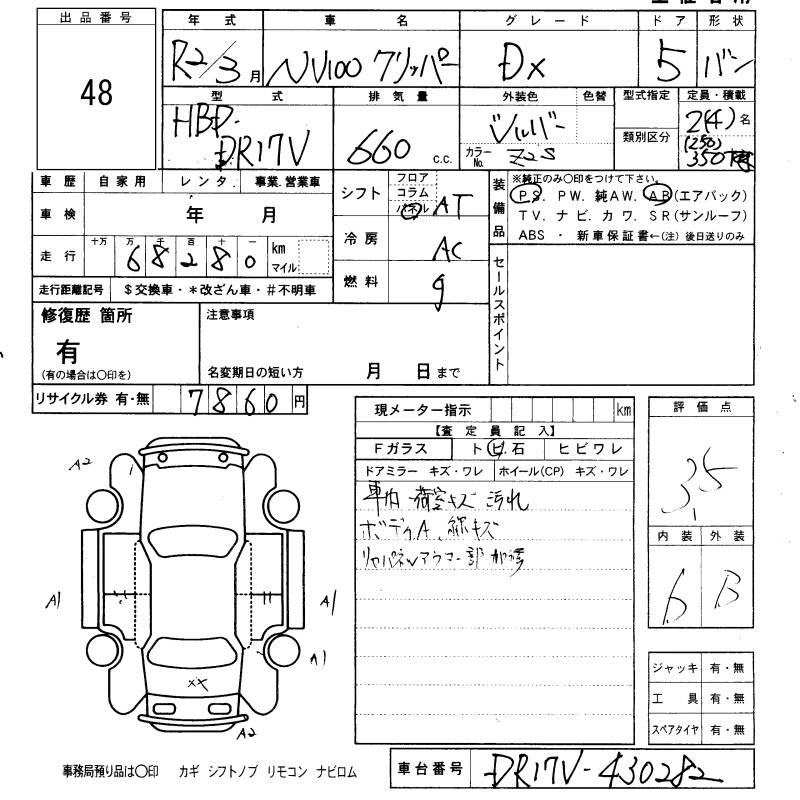 出品番号
48
年式 車名 グレード ドア 形状
R2/3月 NV100 クリッパー DX 5 バン
型式 排気量 外装色 色替 型式指定 定員・積載
HBD-DR17V 660 c.c. シルバー カラーNo. Z2S 類別区分 2(4)名 (250) 350
車歴 自家用 レンタ 事業.営業車
車検 年 月
走行 十万 万 千 百 十 一 km マイル
68280
走行距離記号 $交換車・*改ざん車・#不明車
シフト フロア コラム パネル AT
冷房 AC
燃料 g
装備品 ※純正のみ〇印をつけて下さい。
P.S. PW. 純AW. AB(エアバック)
TV. ナビ. カワ. SR(サンルーフ)
ABS ・ 新車保証書←(注)後日送りのみ
セールスポイント
修復歴 箇所
有
(有の場合は〇印を)
注意事項
名変期日の短い方 月 日まで
リサイクル券 有・無 7860円
現メーター指示 km
【査定員記入】
Fガラス トビ石 ヒビワレ
ドアミラー キズ・ワレ ホイール(CP) キズ・ワレ
車内 荷室キズ 汚れ
ボディA、線キズ
リヤパネル 部
評価点
3.5
内装 外装
B
ジャッキ 有・無
工具 有・無
スペアタイヤ 有・無
A2
A1
A1
A1
XX
A2
事務局預り品は〇印 カギ シフトノブ リモコン ナビロム
車台番号 DR17V-430282